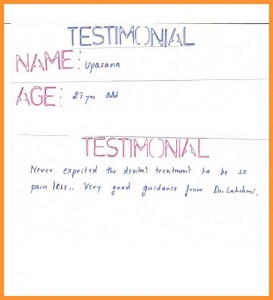 TESTIMONIAL
NAME: Upasana
AGE: 27 yrs old
TESTIMONIAL
Never expected the dental treatment to be so
pain less.. Very good guidance from Dr. Lakshmi.